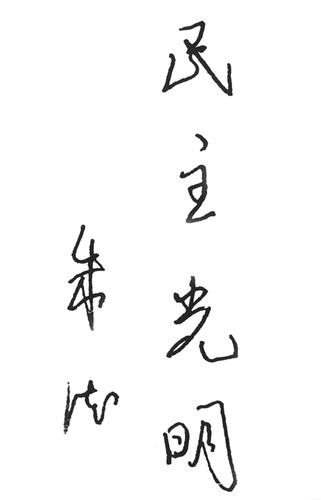 民主光明
朱德